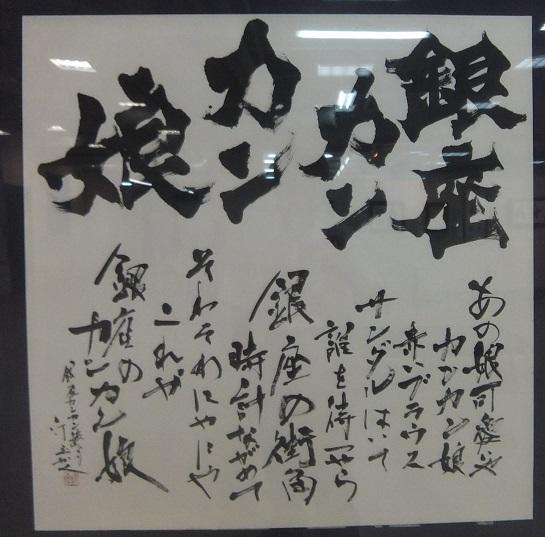 銀座
カン
カン
娘
あの娘可愛や
カンカン娘
赤いブラウス
サンダルはいて
誰を待つやら
銀座の街角
時計ながめて
そわそわにやにや
これが
銀座の
カンカン娘